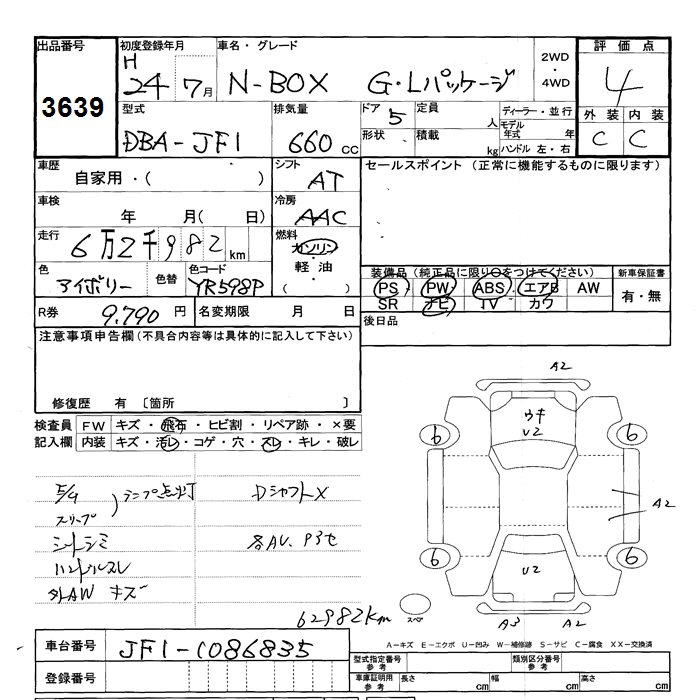 出品番号 初度登録年月 車名・グレード 2WD・4WD 評価点
3639 H 24 7月 N-BOX G・Lパッケージ 4
型式 排気量 ドア 5 定員 人 ディーラー・並行 外装 内装
DBA-JF1 660 cc 形状 積載 kg モデル年式 年 C C
ハンドル 左・右
車歴 シフト セールスポイント (正常に機能するものに限ります)
自家用・( ) AT
車検 冷房
年 月( 日) AAC
走行 燃料
6万2千982 km ガソリン
軽油
( )
色 色替 色コード
アイボリー YR598P
装備品 (純正品に限り○をつけてください) 新車保証書
PS PW ABS エアB AW 有・無
SR ナビ TV カワ
R券 9,790 円 名変期限 月 日 後日品
注意事項申告欄 (不具合内容等は具体的に記入して下さい)
修復歴 有 〔箇所 〕
検査員 FW キズ・飛石・ヒビ割・リペア跡・×要
記入欄 内装 キズ・汚レ・コゲ・穴・スレ・キレ・破レ
ランプ点灯 DシャフトX
シートシミ
ハンドルスレ
外AW キズ
62982km
A2
ウキ
U2
6 6
A2
6 6
U2
スペア
A3 A2
車台番号 JF1-1086835
A-キズ E-エクボ U-凹み W-補修跡 S-サビ C-腐食 XX-交換済
登録番号
型式指定番号 参考 類別区分番号 参考
車庫証明用 参考 長さ cm 幅 cm 高さ cm